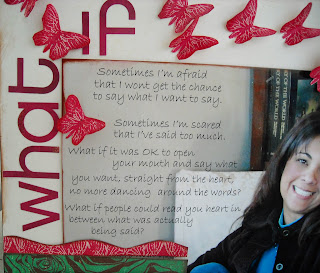 what if
Sometimes I'm afraid
that I wont get the chance
to say what I want to say.
Sometimes I'm scared
that I've said too much.
What if it was OK to open
your mouth and say what
you want, straight from the heart,
no more dancing around the words?
What if people could read you heart in
between what was actually
being said?
OF THE WORLD